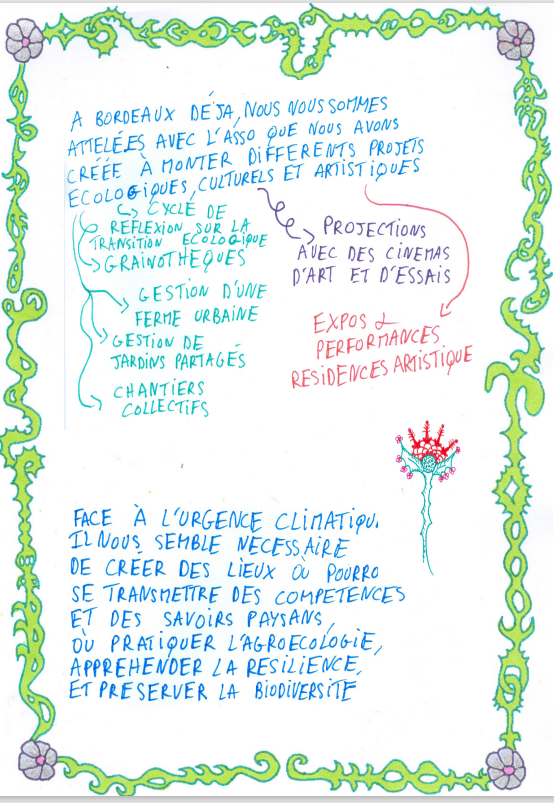 A BORDEAUX DÉJA, NOUS NOUS SOMMES
ATTELÉES AVEC L'ASSO QUE NOUS AVONS
CRÉÉE À MONTER DIFFERENTS PROJETS
ECOLOGIQUES, CULTURELS ET ARTISTIQUES
CYCLE DE
RÉFLEXION SUR LA
TRANSITION ECOLOGIQUE
GRAINOTHÈQUES
GESTION D'UNE
FERME URBAINE
GESTION DE
JARDINS PARTAGÉS
CHANTIERS
COLLECTIFS
PROJECTIONS
AVEC DES CINEMAS
D'ART ET D'ESSAIS
EXPOS &
PERFORMANCES
RESIDENCES ARTISTIQUE
FACE À L'URGENCE CLIMATIQU
IL NOUS SEMBLE NECESSAIRE
DE CRÉER DES LIEUX OÙ POURRO
SE TRANSMETTRE DES COMPETENCES
ET DES SAVOIRS PAYSANS,
OÙ PRATIQUER L'AGROECOLOGIE,
APPREHENDER LA RESILIENCE,
ET PRESERVER LA BIODIVERSITE